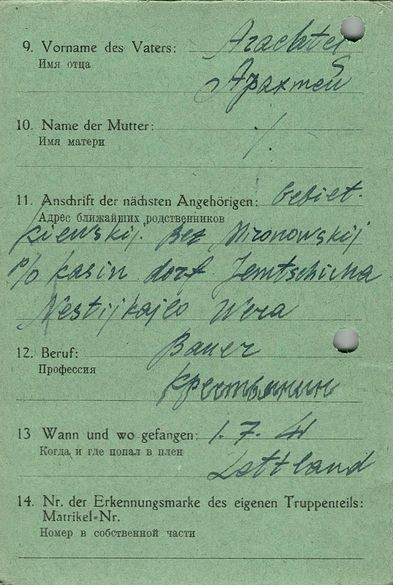 9. Vorname des Vaters:
Имя отца
10. Name der Mutter: /.
Имя матери
11. Anschrift der nächsten Angehörigen: Gebiet
Адрес ближайших родственников
Kiewskij. Bez Mironowskij
P/o Kasin dorf Jemtschicha
Wera
12. Beruf: Bauer
Профессия
Крестьянин
13 Wann und wo gefangen: 1. 7. 41
Когда и где попал в плен
Lettland
14. Nr. der Erkennungsmarke des eigenen Truppenteils:
Matrikel-Nr.
Номер в собственной части